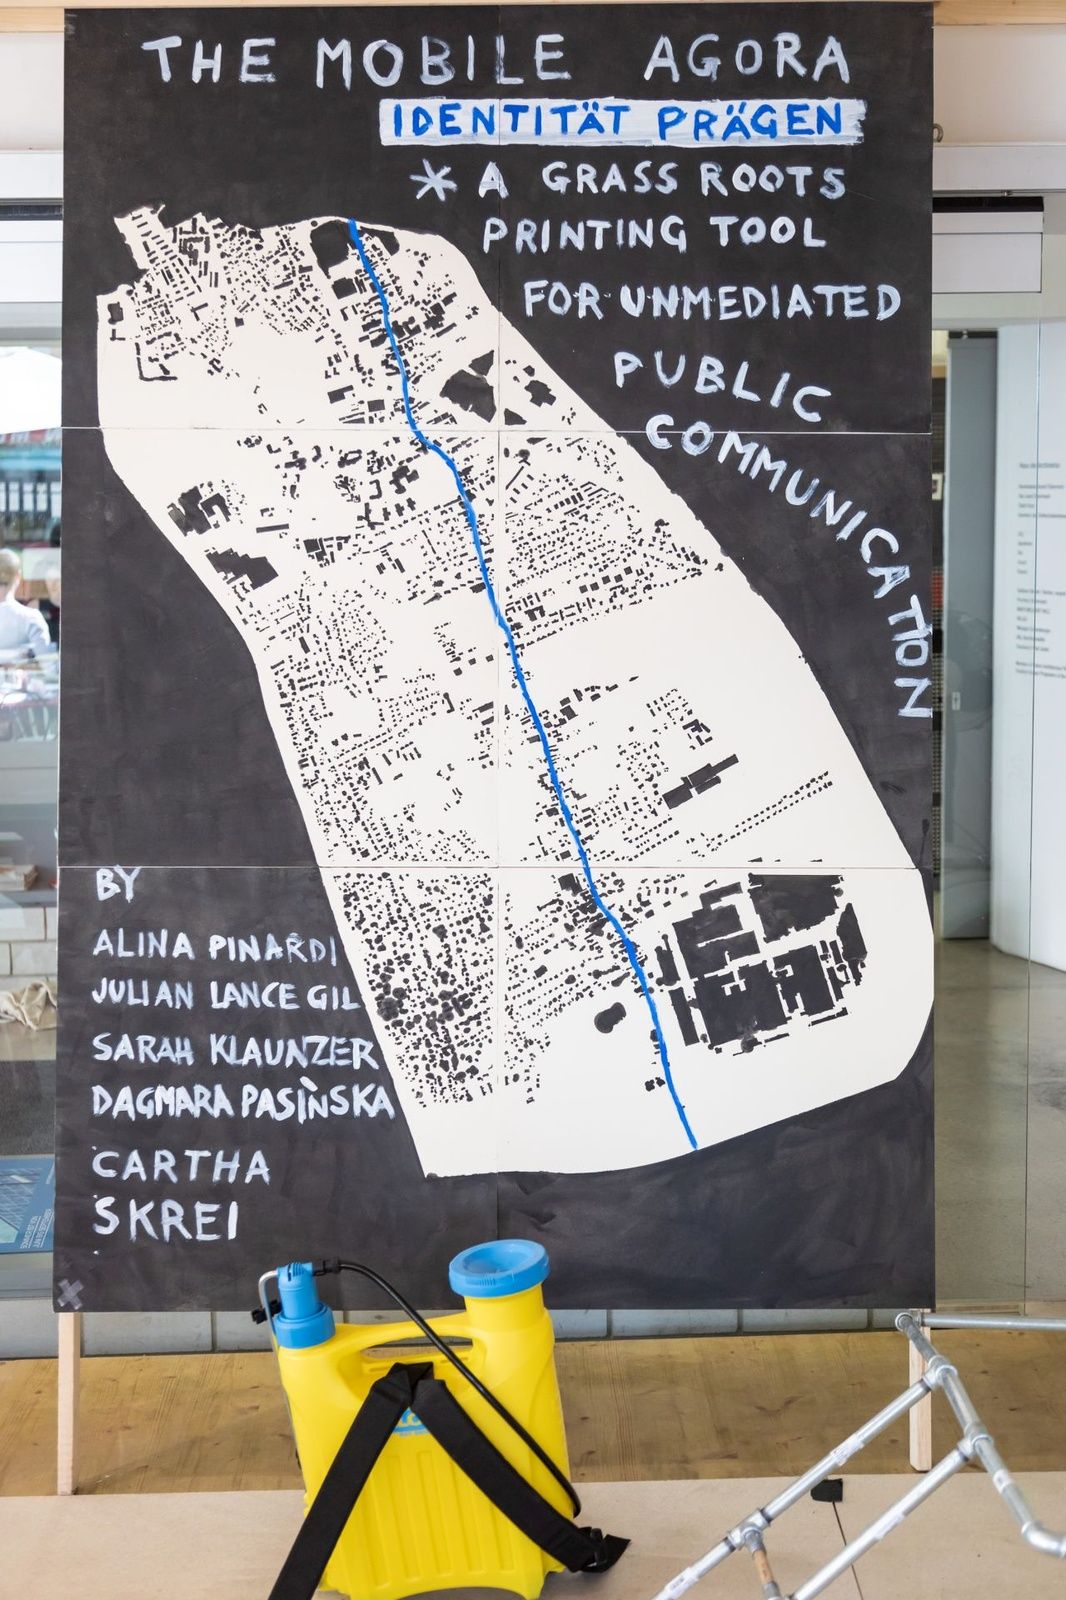 THE MOBILE AGORA
IDENTITÄT PRÄGEN
* A GRASS ROOTS
PRINTING TOOL
FOR UNMEDIATED
PUBLIC
COMMUNICATION
BY
ALINA PINARDI
JULIAN LANCE GIL
SARAH KLAUNZER
DAGMARA PASÌNSKA
CARTHA
SKREI